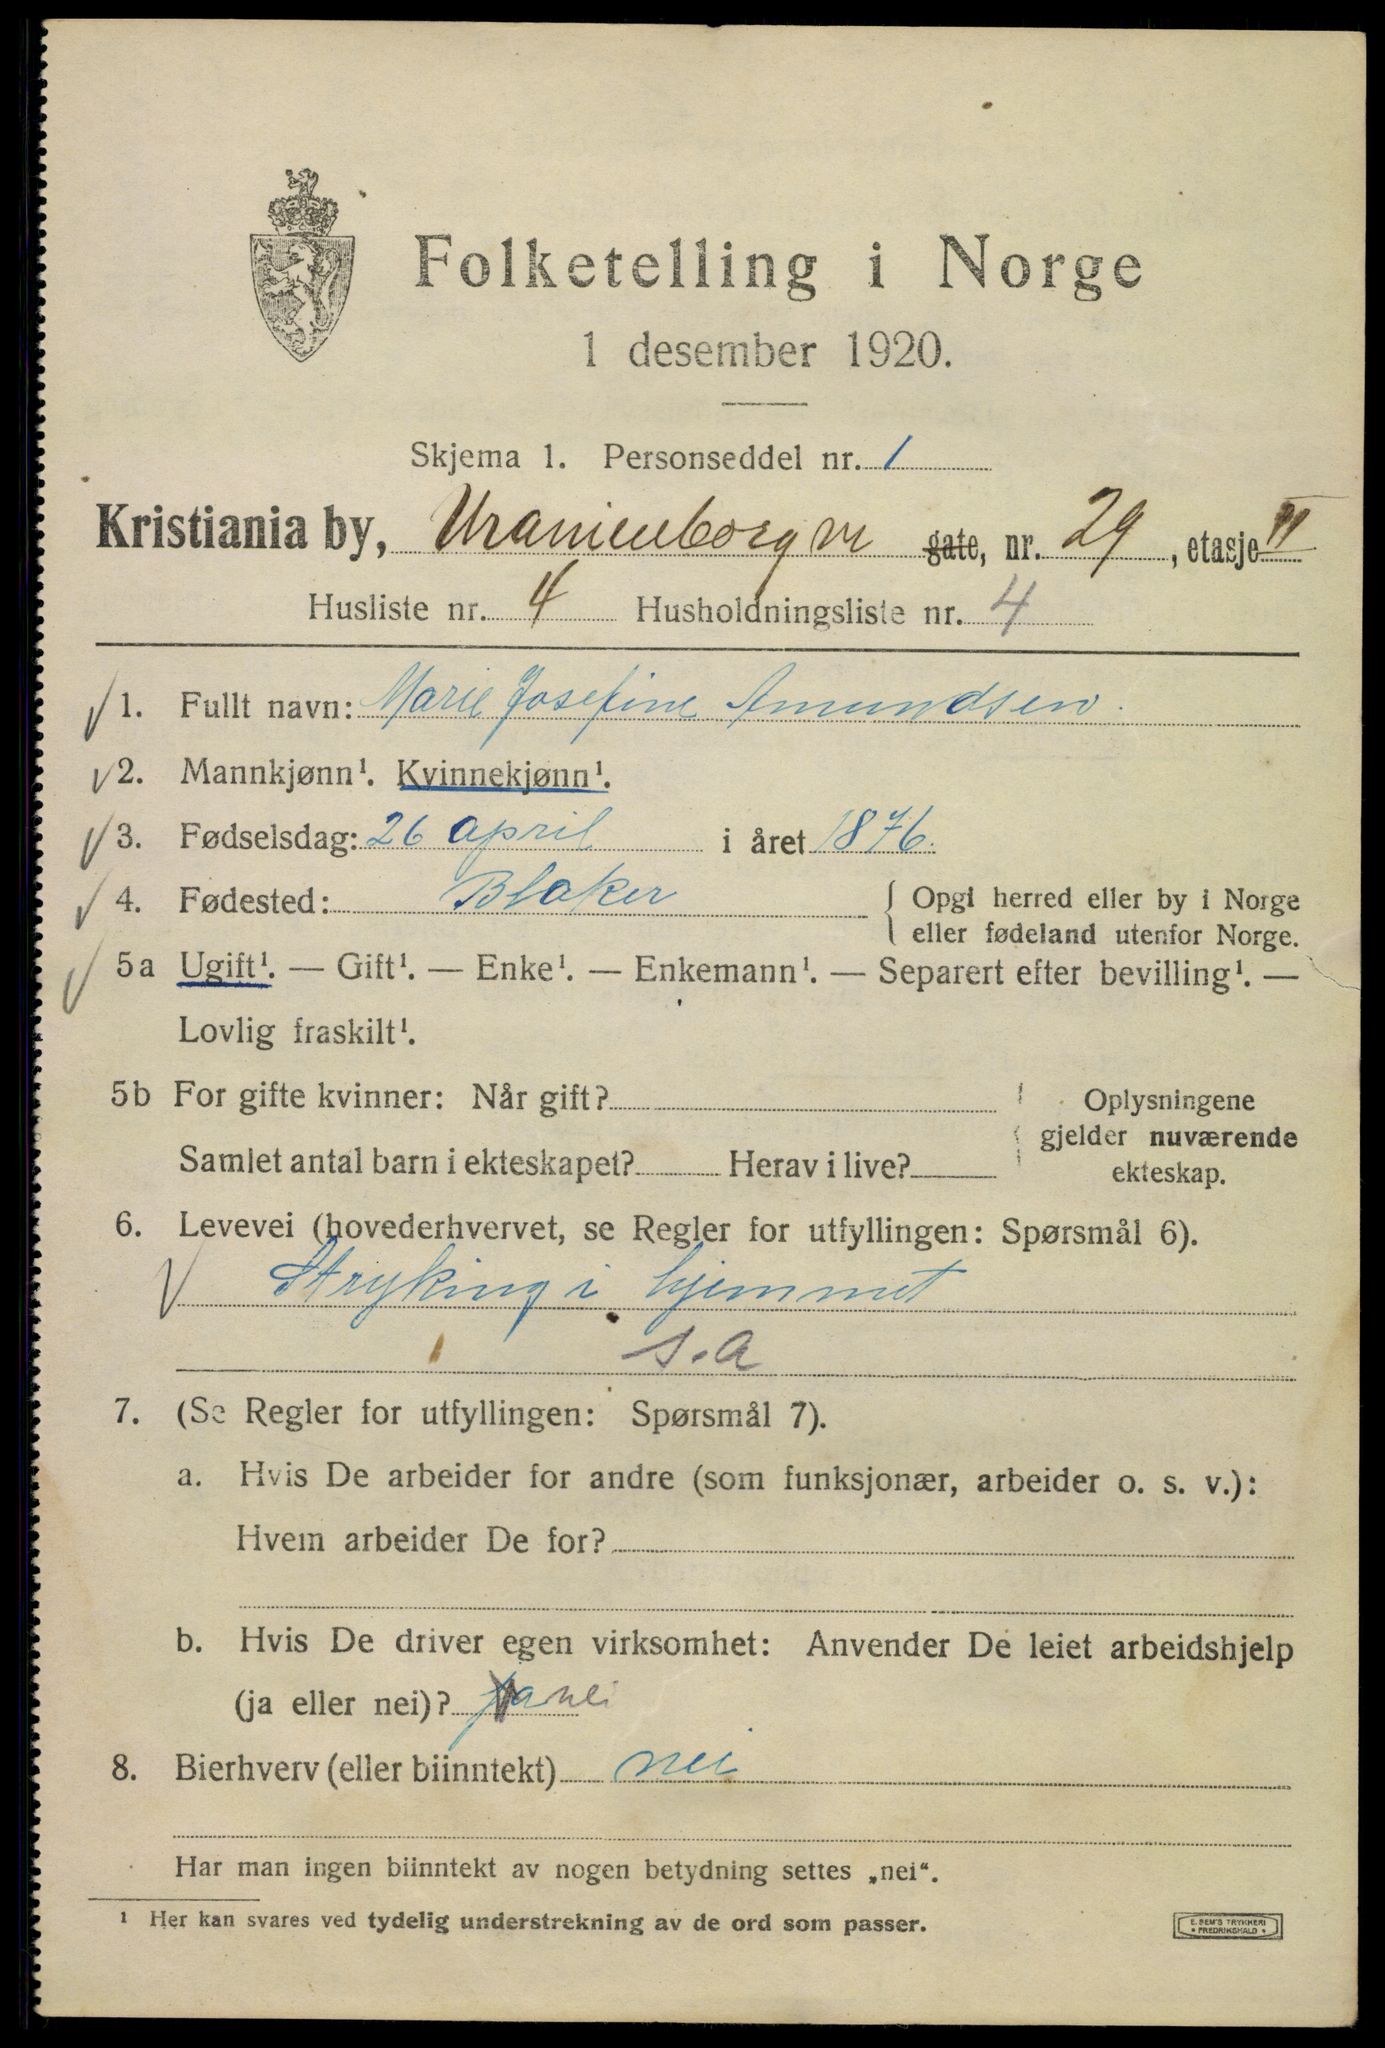 Folketelling i Norge
1 desember 1920.
Skjema 1. Personseddel nr. 1
Kristiania by, Uranienborgvn gate, nr. 29, etasje II
Husliste nr. 4 Husholdningsliste nr. 4
1. Fullt navn: Marie Josefine Amundsen.
2. Mannkjønn¹. Kvinnekjønn¹.
3. Fødselsdag: 26 april i året 1876.
4. Fødested: Blaker { Opgi herred eller by i Norge
eller fødeland utenfor Norge.
5a Ugift¹. — Gift¹. — Enke¹. — Enkemann¹. — Separert efter bevilling¹. —
Lovlig fraskilt¹.
5b For gifte kvinner: Når gift? Oplysningene
gjelder nuværende
Samlet antal barn i ekteskapet? Herav i live?
ekteskap.
6. Levevei (hovederhvervet, se Regler for utfyllingen: Spørsmål 6).
Stryking i hjemmet
s.a
7. (Se Regler for utfyllingen: Spørsmål 7).
a. Hvis De arbeider for andre (som funksjonær, arbeider o. s. v.):
Hvem arbeider De for?
b. Hvis De driver egen virksomhet: Anvender De leiet arbeidshjelp
(ja eller nei)? ja nei
8. Bierhverv (eller biinntekt) nei
Har man ingen biinntekt av nogen betydning settes „nei“.
¹ Her kan svares ved tydelig understrekning av de ord som passer.
E. SEM'S TRYKKERI
• FREDRIKSHALD •